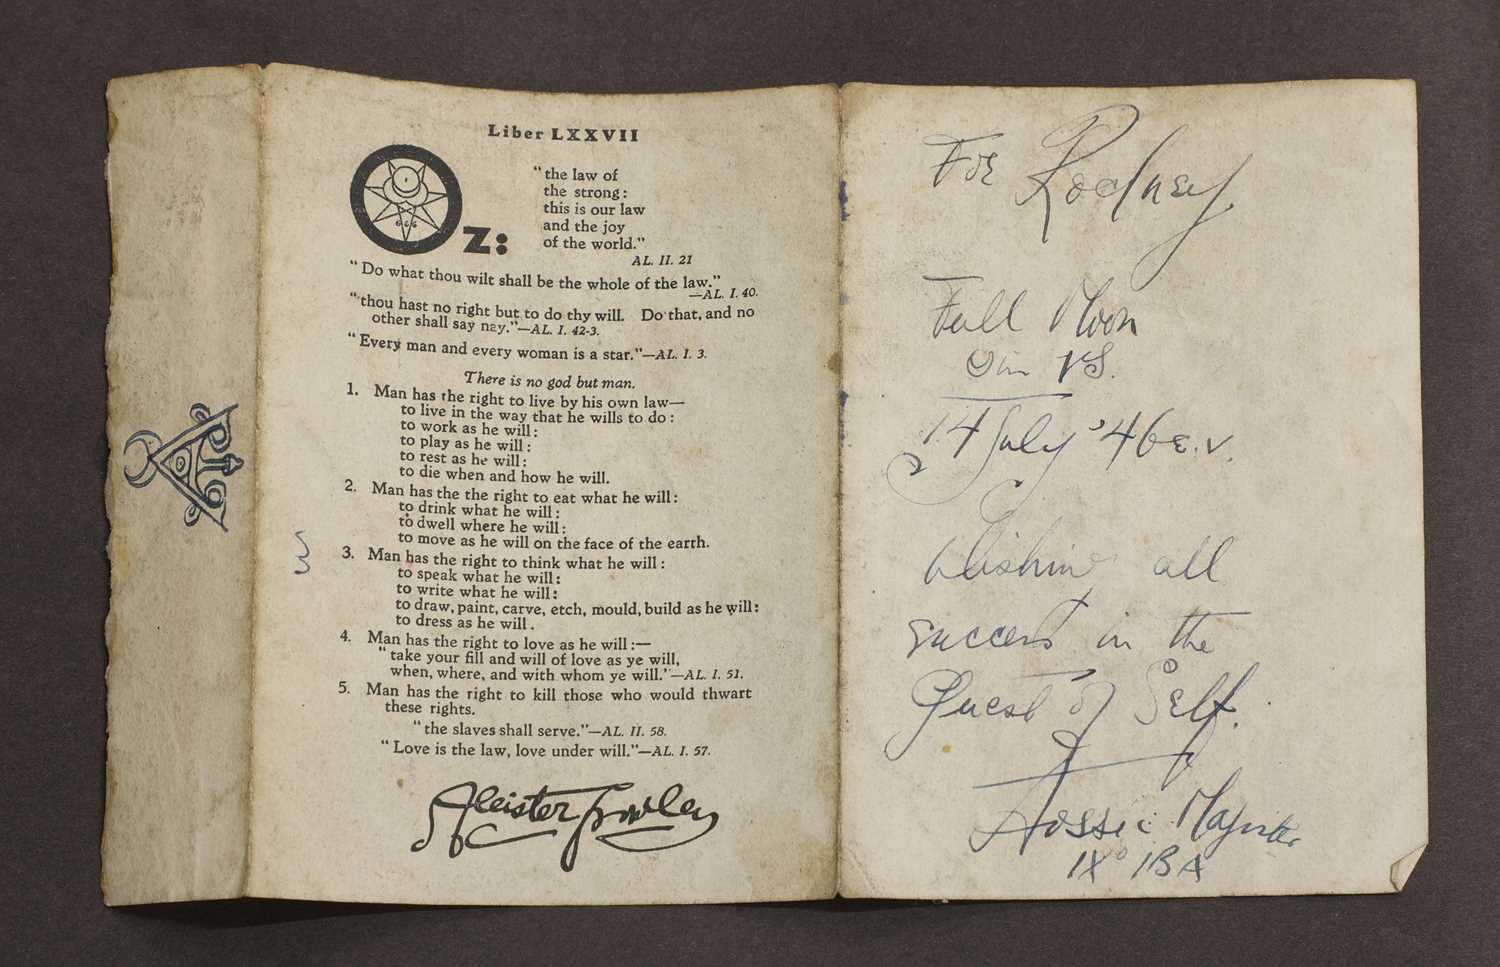 Liber LXXVII
Oz:
"the law of
the strong:
this is our law
and the joy
of the world."
AL. II. 21
"Do what thou wilt shall be the whole of the law."
—AL. I. 40.
"thou hast no right but to do thy will. Do that, and no
other shall say nay."—AL. I. 42-3.
"Every man and every woman is a star."—AL. I. 3.
There is no god but man.
1. Man has the right to live by his own law—
to live in the way that he wills to do:
to work as he will:
to play as he will:
to rest as he will:
to die when and how he will.
2. Man has the the right to eat what he will:
to drink what he will:
to dwell where he will:
to move as he will on the face of the earth.
3. Man has the right to think what he will:
to speak what he will:
to write what he will:
to draw, paint, carve, etch, mould, build as he will:
to dress as he will.
4. Man has the right to love as he will:—
"take your fill and will of love as ye will,
when, where, and with whom ye will."—AL. I. 51.
5. Man has the right to kill those who would thwart
these rights.
"the slaves shall serve."—AL. II. 58.
"Love is the law, love under will."—AL. I. 57.
Aleister Crowley
666
For Rodney
Full Moon
in
14 July '46 e.v.
Wishing all
success in the
Quest of Self.
Magister
IX°